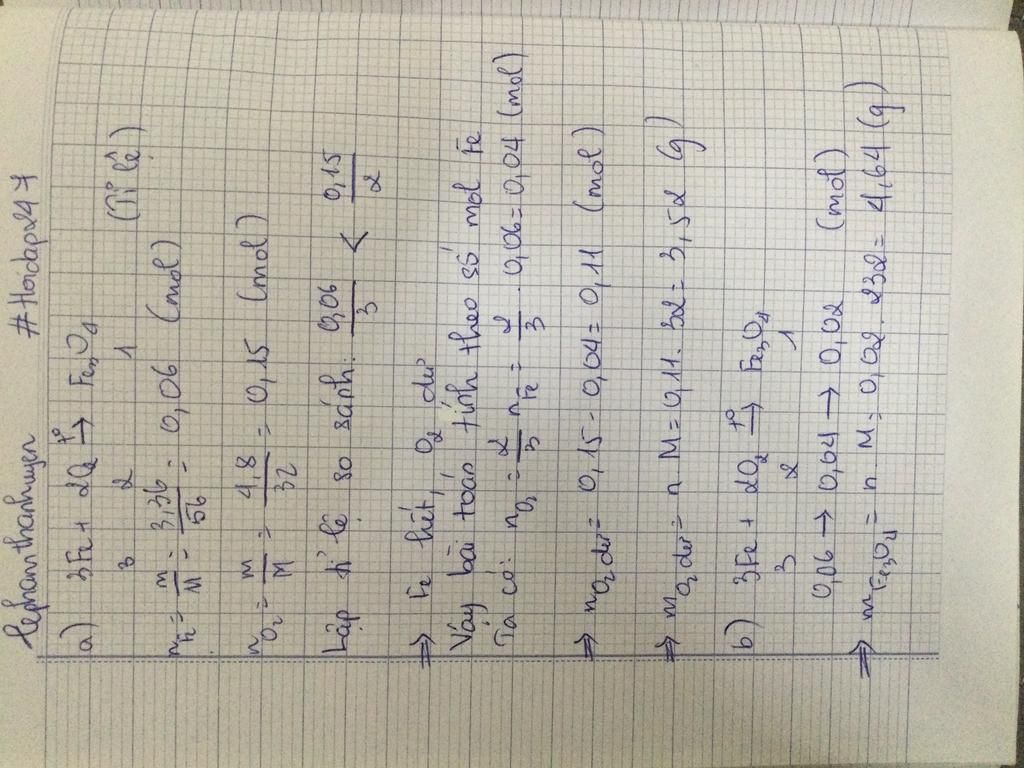 lephamthanhuyen #Hoidap247
a) 3Fe + 2O2 t° → Fe3O4
3 2 1 (Tỉ lệ)
nFe = m/M = 3,36/56 = 0,06 (mol)
nO2 = m/M = 4,8/32 = 0,15 (mol)
Lập tỉ lệ so sánh: 0,06/3 < 0,15/2
⇒ Fe hết, O2 dư
Vậy bài toán tính theo số mol Fe
Ta có: nO2 = 2/3 nFe = 2/3 . 0,06 = 0,04 (mol)
⇒ nO2 dư = 0,15 - 0,04 = 0,11 (mol)
⇒ mO2 dư = n. M = 0,11. 32 = 3,52 (g)
b) 3Fe + 2O2 t° → Fe3O4
3 2 1
0,06 → 0,04 → 0,02 (mol)
⇒ mFe3O4 = n. M = 0,02. 232 = 4,64 (g)